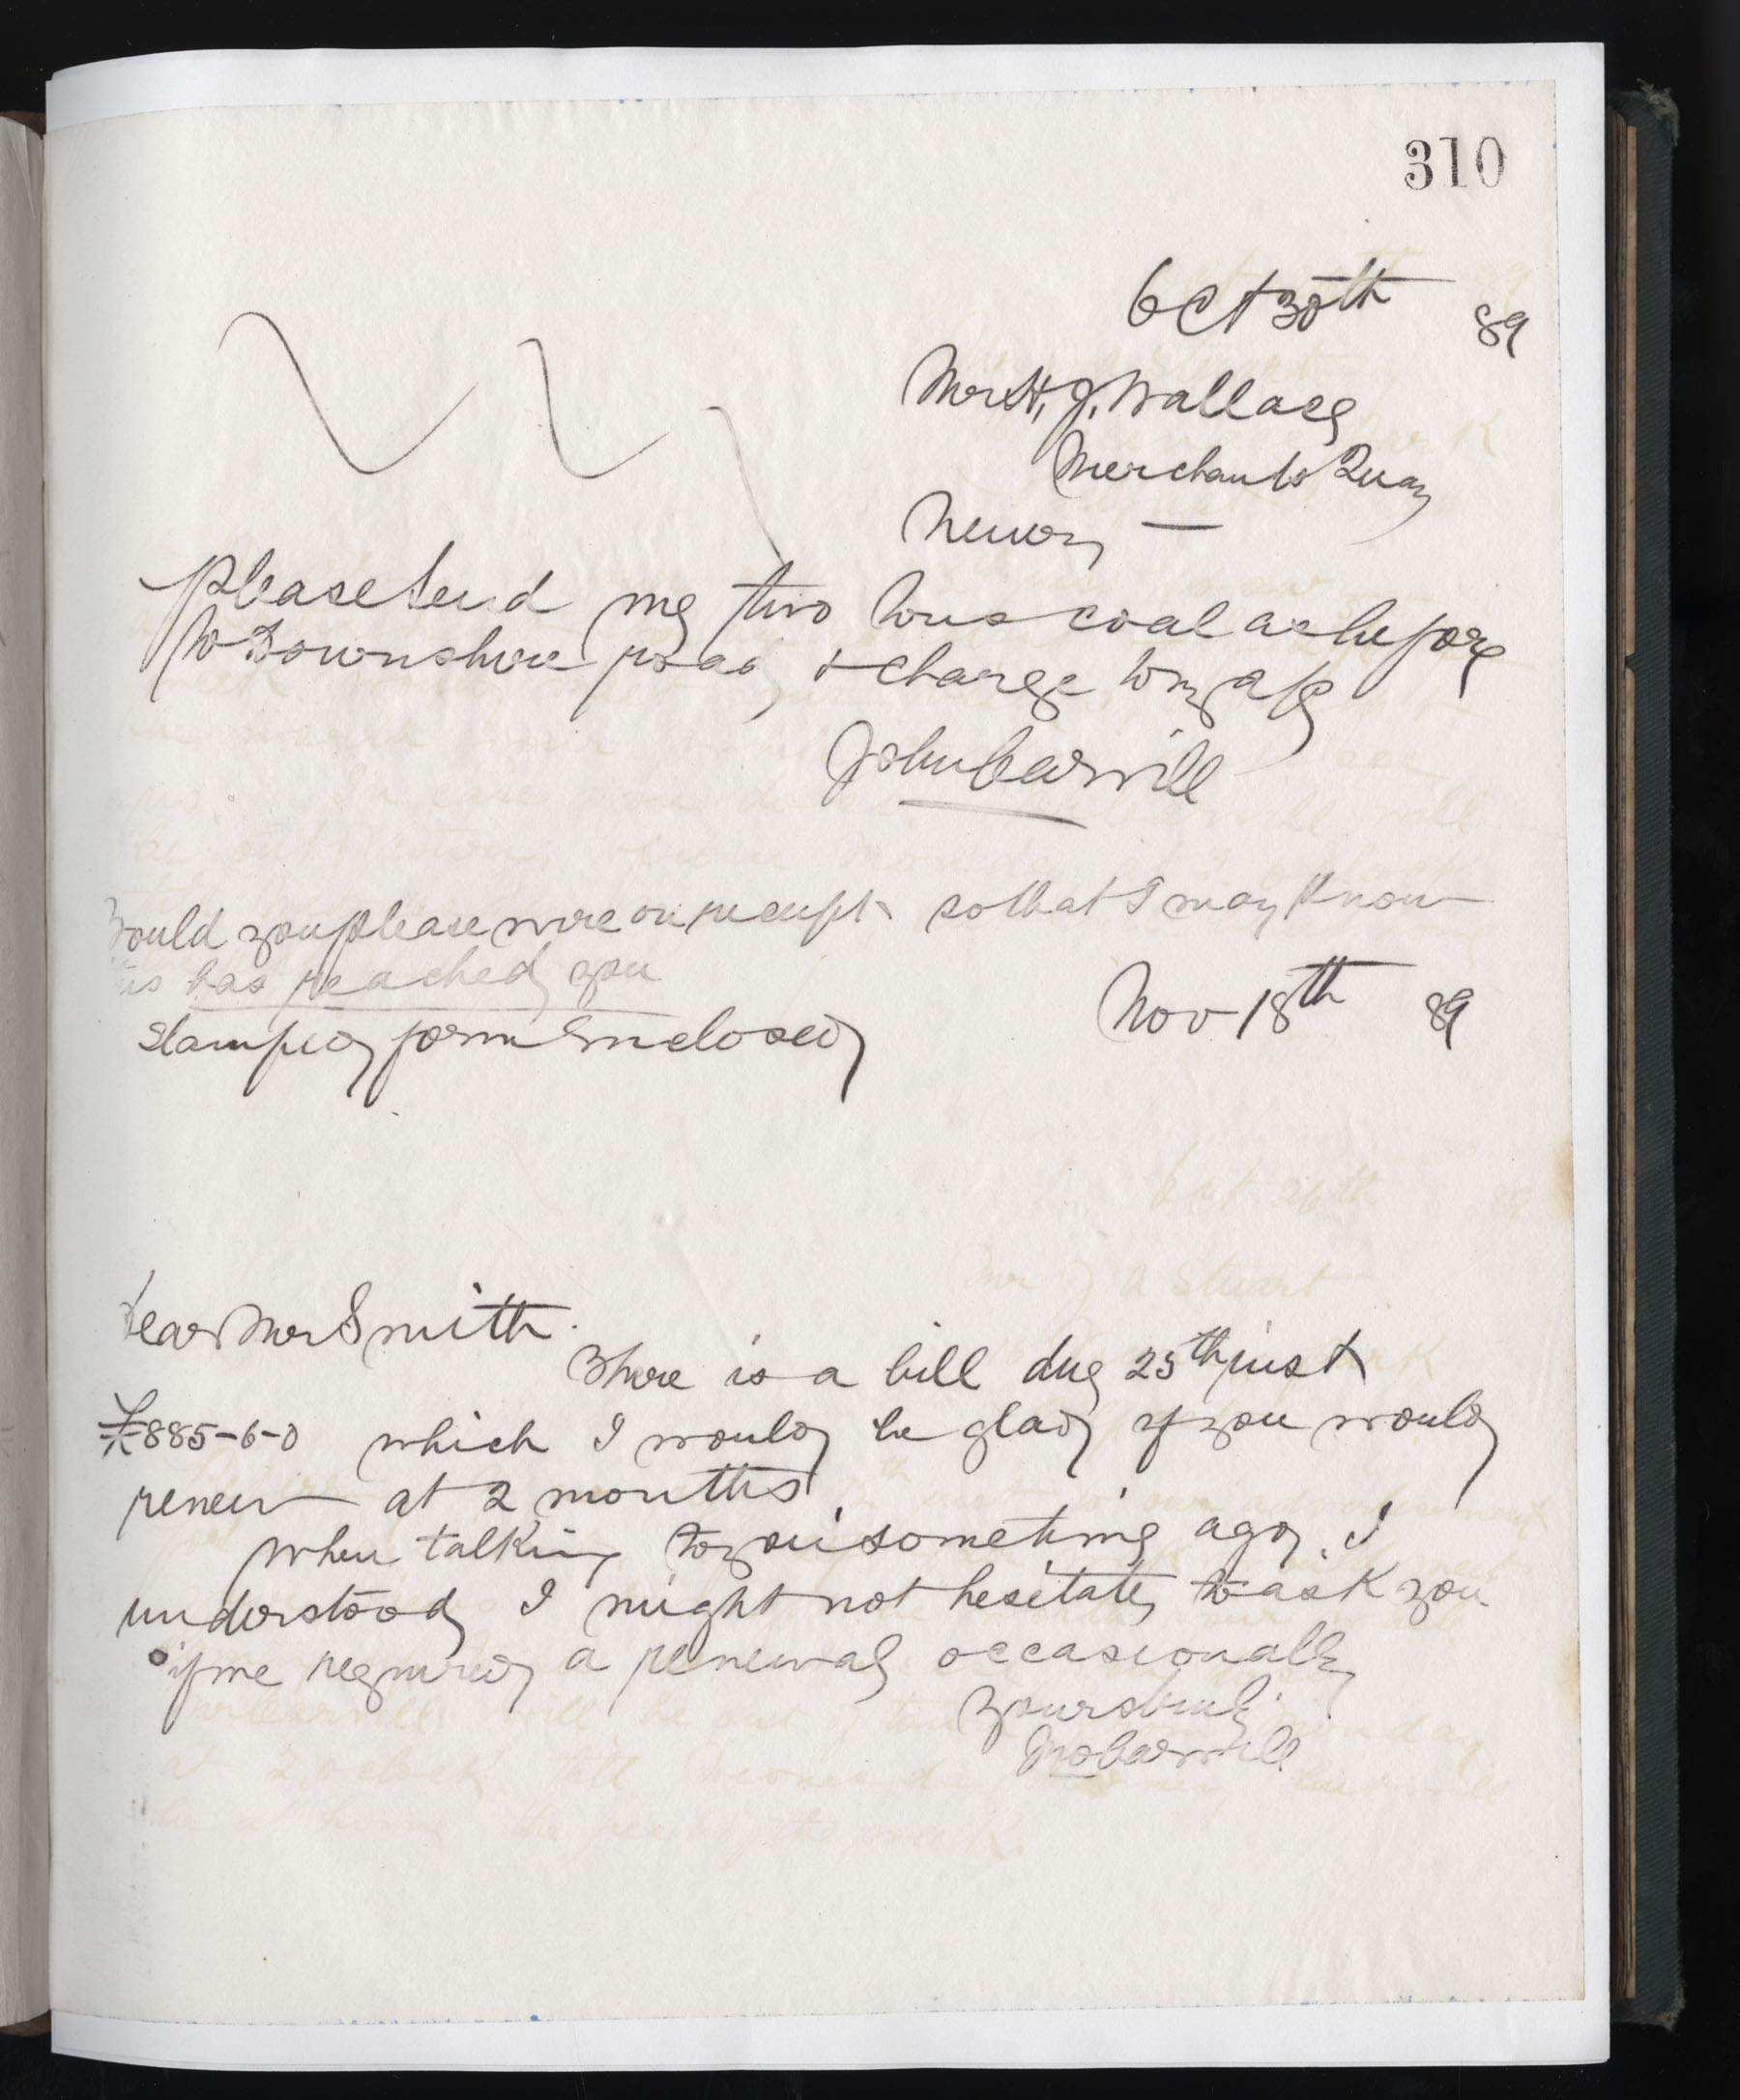 310
Oct 30th 89
Mr H. J. Wallace
Merchants Quay
Newry —
Please send me two tons coal as before
to Downshire road, & charge to my a/c
John Carvill
Would you please wire on receipt so that I may know
this has reached you
Stamped form Enclosed
Nov 18th 89
Dear Mr Smith.
There is a bill due 25th inst
£885-6-0 which I would be glad if you would
renew at 2 months.
When talking to you sometime ago, I
understood I might not hesitate, to ask you
if we required a renewal occasionally
Yours truly
Jno Carvill